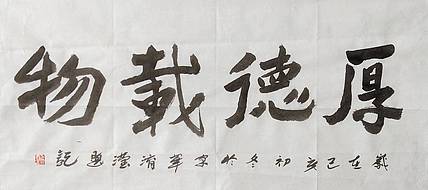 厚德載物
歲在己亥初冬於京華清瀅選記